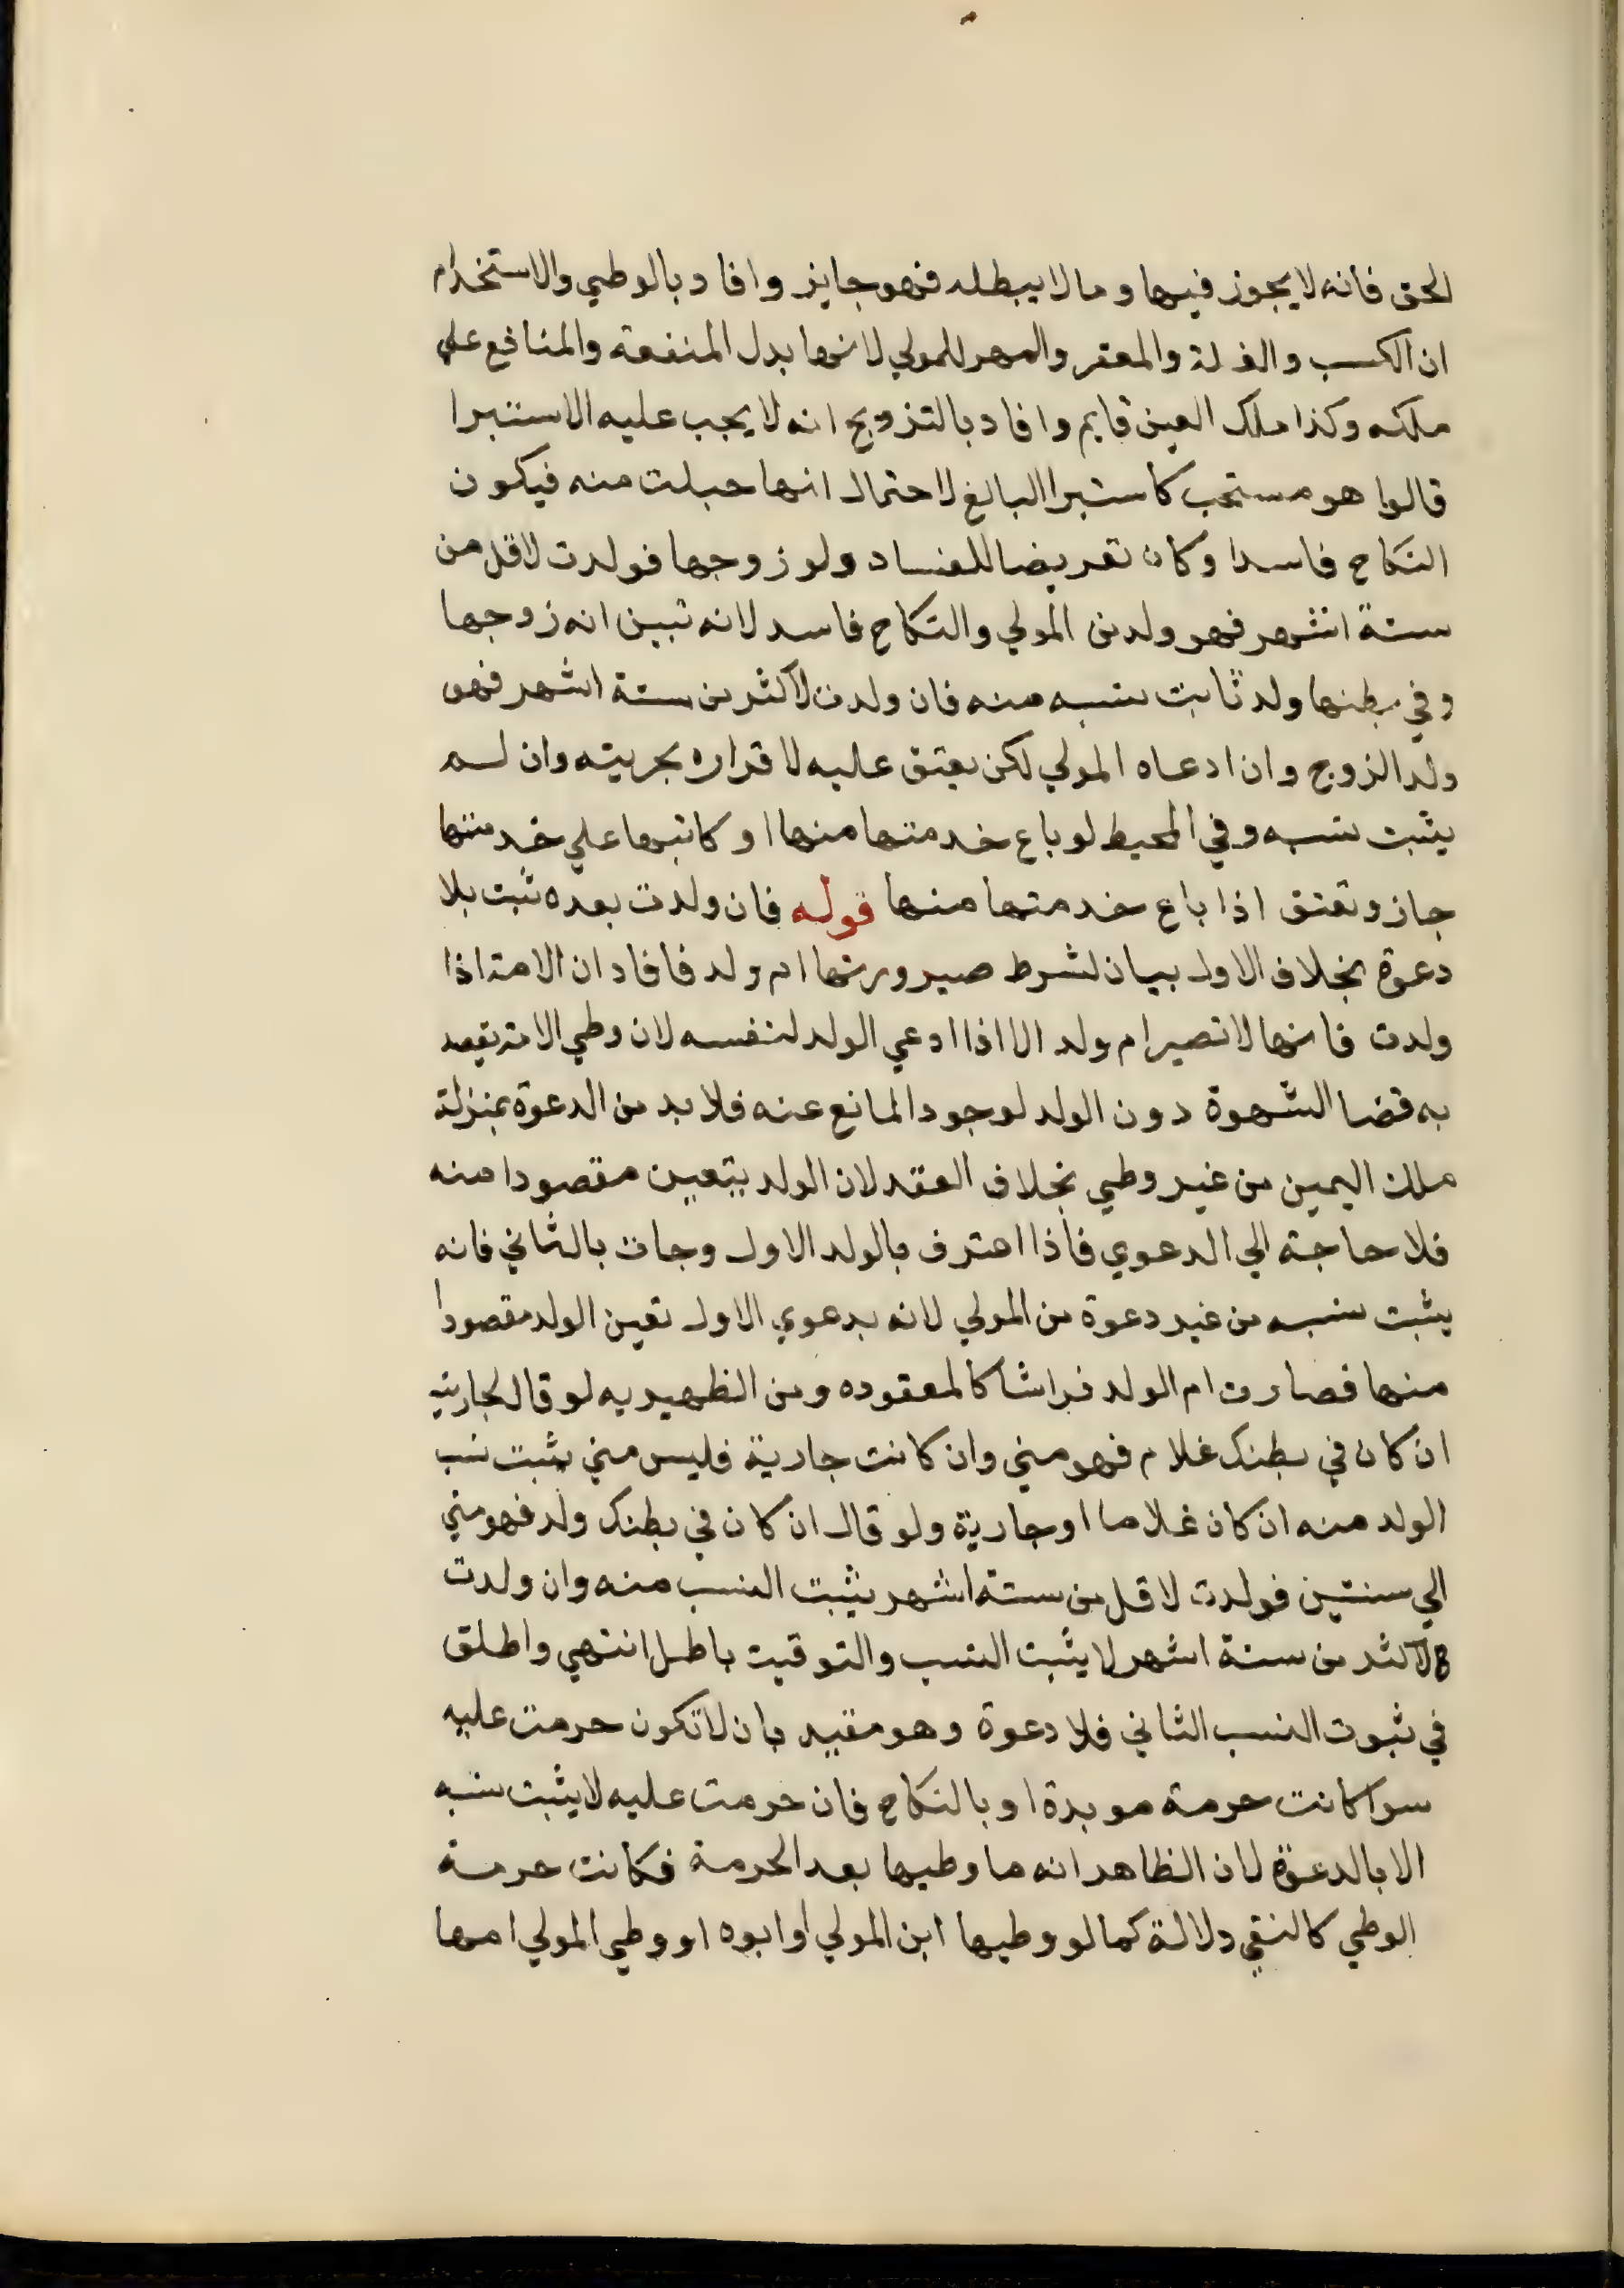 الحق فانه لا يجوز فيها وما لا يبطله فهو جايز وافاد بالوطي والاستخدام
ان الكسب والغلة والعقر والمهر للمولي لانها بدل المنفعة والمنافع علي
ملكه وكذا ملك العين قايم وافاد بالتزويج انه لا يجب عليه الاستبرا
قالوا هو مستحب كاستبرا البائع لاحتمال انها حبلت منه فيكون
النكاح فاسدا وكان تعريضا للفساد ولو زوجها فولدت لاقل من
ستة اشهر فهو ولد من المولي والنكاح فاسد لانه تبين انه زوجها
وفي بطنها ولد ثابت نسبه منه فان ولدت لاكثر من ستة اشهر فهو
ولد الزوج وان ادعاه المولي لكن يعتق عليه لاقراره بحريته وان لم
يثبت نسبه وفي المحيط لو باع خدمتها منها او كاتبها علي خدمتها
جاز وتعتق اذا باع خدمتها منها قوله فان ولدت بعده ثبت بلا
دعوة بخلاف الاول بيان لشرط صيرورتها ام ولد فافاد ان الامة اذا
ولدت فانها لا تصير ام ولد الا اذا ادعي الولد لنفسه لان وطي الامة يقصد
به قضا الشهوة دون الولد لوجود المانع عنه فلا بد من الدعوة بمنزلة
ملك اليمين من غير وطي بخلاف العقد لان الولد يتعين مقصودا منه
فلا حاجة الي الدعوي فاذا اعترف بالولد الاول وجات بالثاني فانه
يثبت نسبه من غير دعوة من المولي لانه بدعوي الاول تعين الولد مقصودا
منها فصارت ام الولد فراشا كالمعقوده ومن الظهيريه لو قال لجاريته
ان كان في بطنك غلام فهو مني وان كانت جارية فليس مني يثبت نسب
الولد منه ان كان غلاما او جارية ولو قال ان كان في بطنك ولد فهو مني
الي سنتين فولدت لاقل من ستة اشهر يثبت النسب منه وان ولدت
لاكثر من ستة اشهر لا يثبت النسب والتوقيت باطل انتهي واطلق
في ثبوت النسب الثاني فلا دعوة وهو مقيد بان لا تكون حرمت عليه
سوا كانت حرمة موبدة او بالنكاح فان حرمت عليه لا يثبت نسبه
الا بالدعوة لان الظاهر انه ما وطيها بعد الحرمة فكانت حرمة
الوطي كالنفي دلالة كما لو وطيها ابن المولي او ابوه او وطي المولي امها